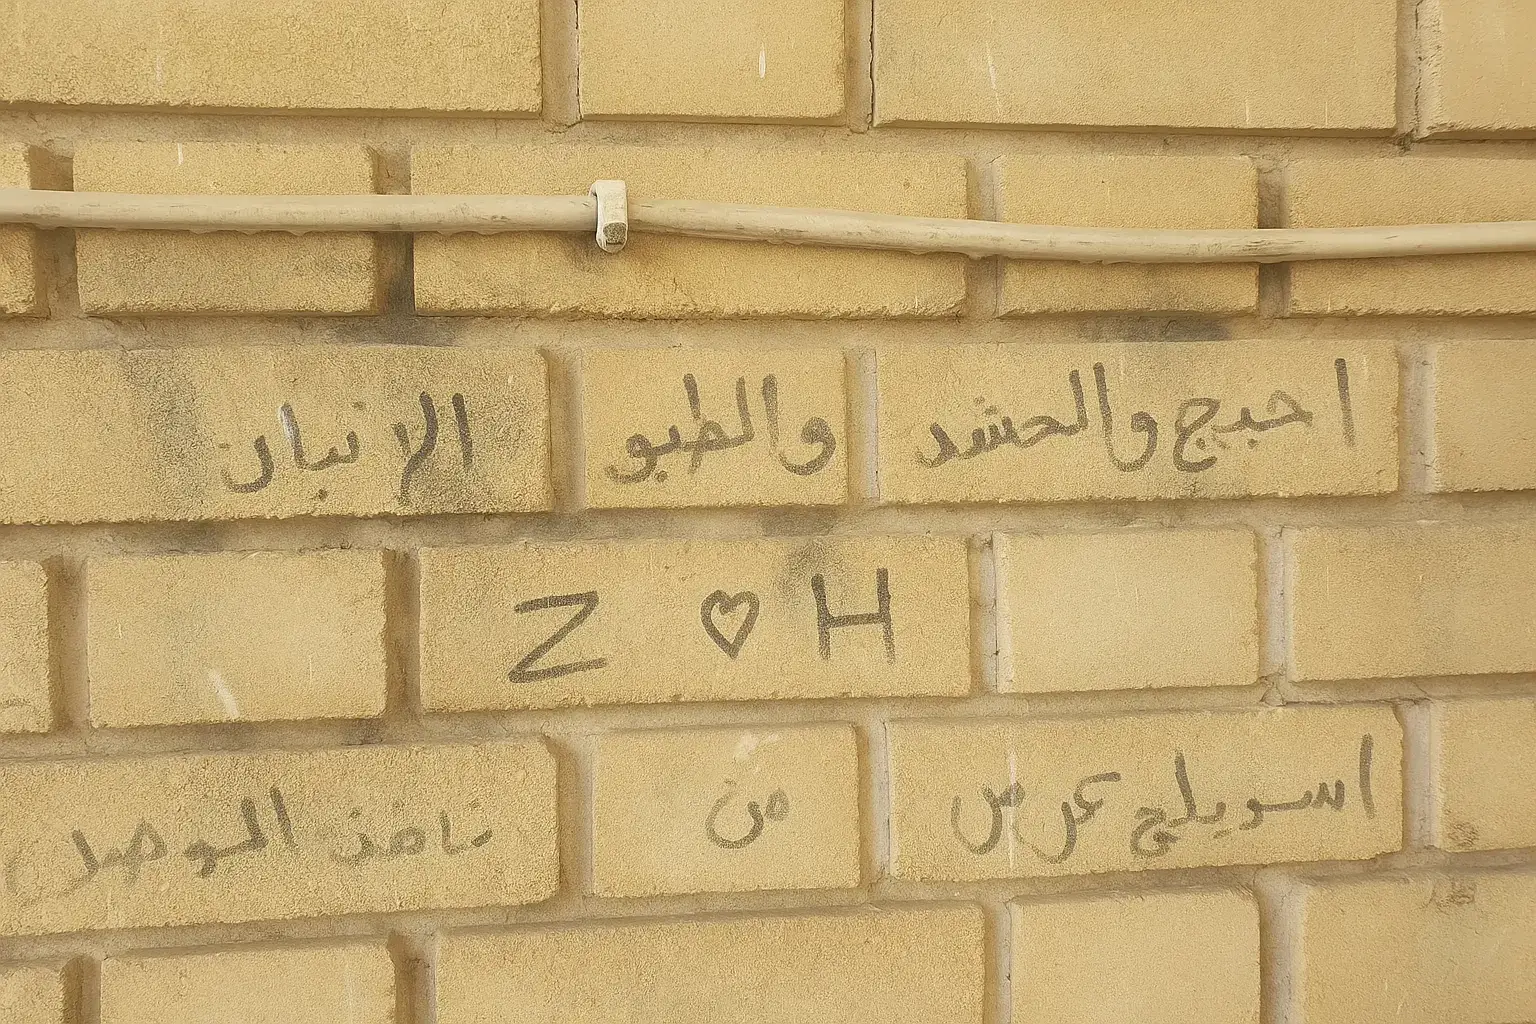 احبج والحشد والطبو الانبار
Z ♡ H
اسويلج عرس من ناخذ الموصل